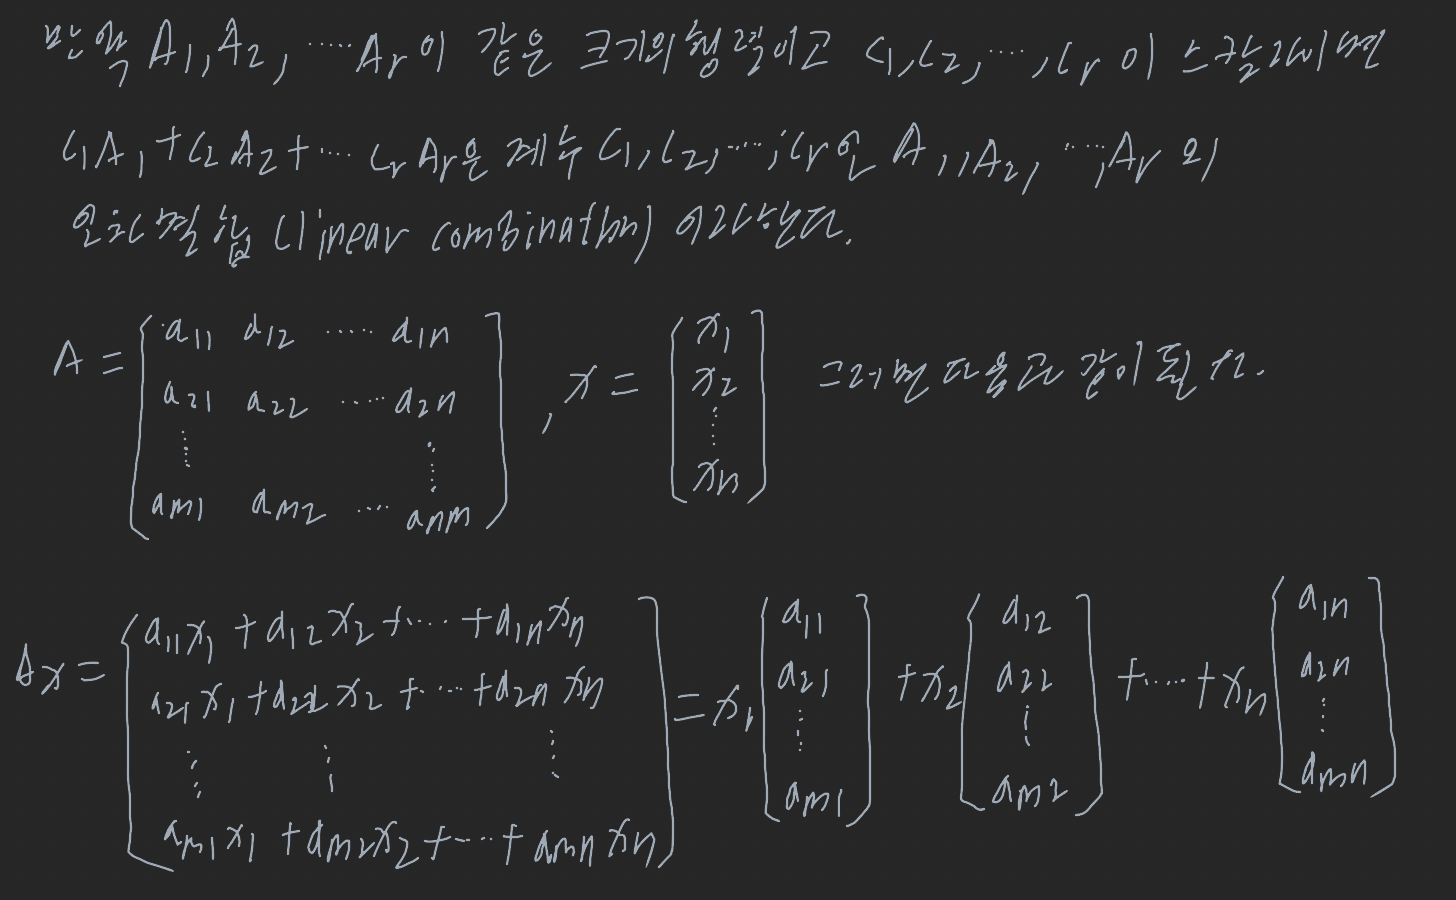 만약 A1, A2, ..... Ar이 같은 크기의 행렬이고 c1, c2, ...., cr 이 스칼라이면
c1A1 + c2A2 + .... crAr은 계수 c1, c2, ...., cr인 A1, A2, ..., Ar 의
일차결합 (linear combination) 이라 한다.
A = [a11 a12 ..... a1n
a21 a22 ..... a2n
⋮ ⋮
am1 am2 .... anm] , x = [x1
x2
⋮
xn] 그러면 다음과 같이 된다.
Ax = [a11x1 + a12x2 + ... + a1nxn
a21x1 + a22x2 + .... + a2nxn
⋮ ⋮ ⋮
am1x1 + am2x2 + .... + amnxn] = x1 [a11
a21
⋮
am1] + x2 [a12
a22
⋮
am2] + .... + xn [a1n
a2n
⋮
amn]